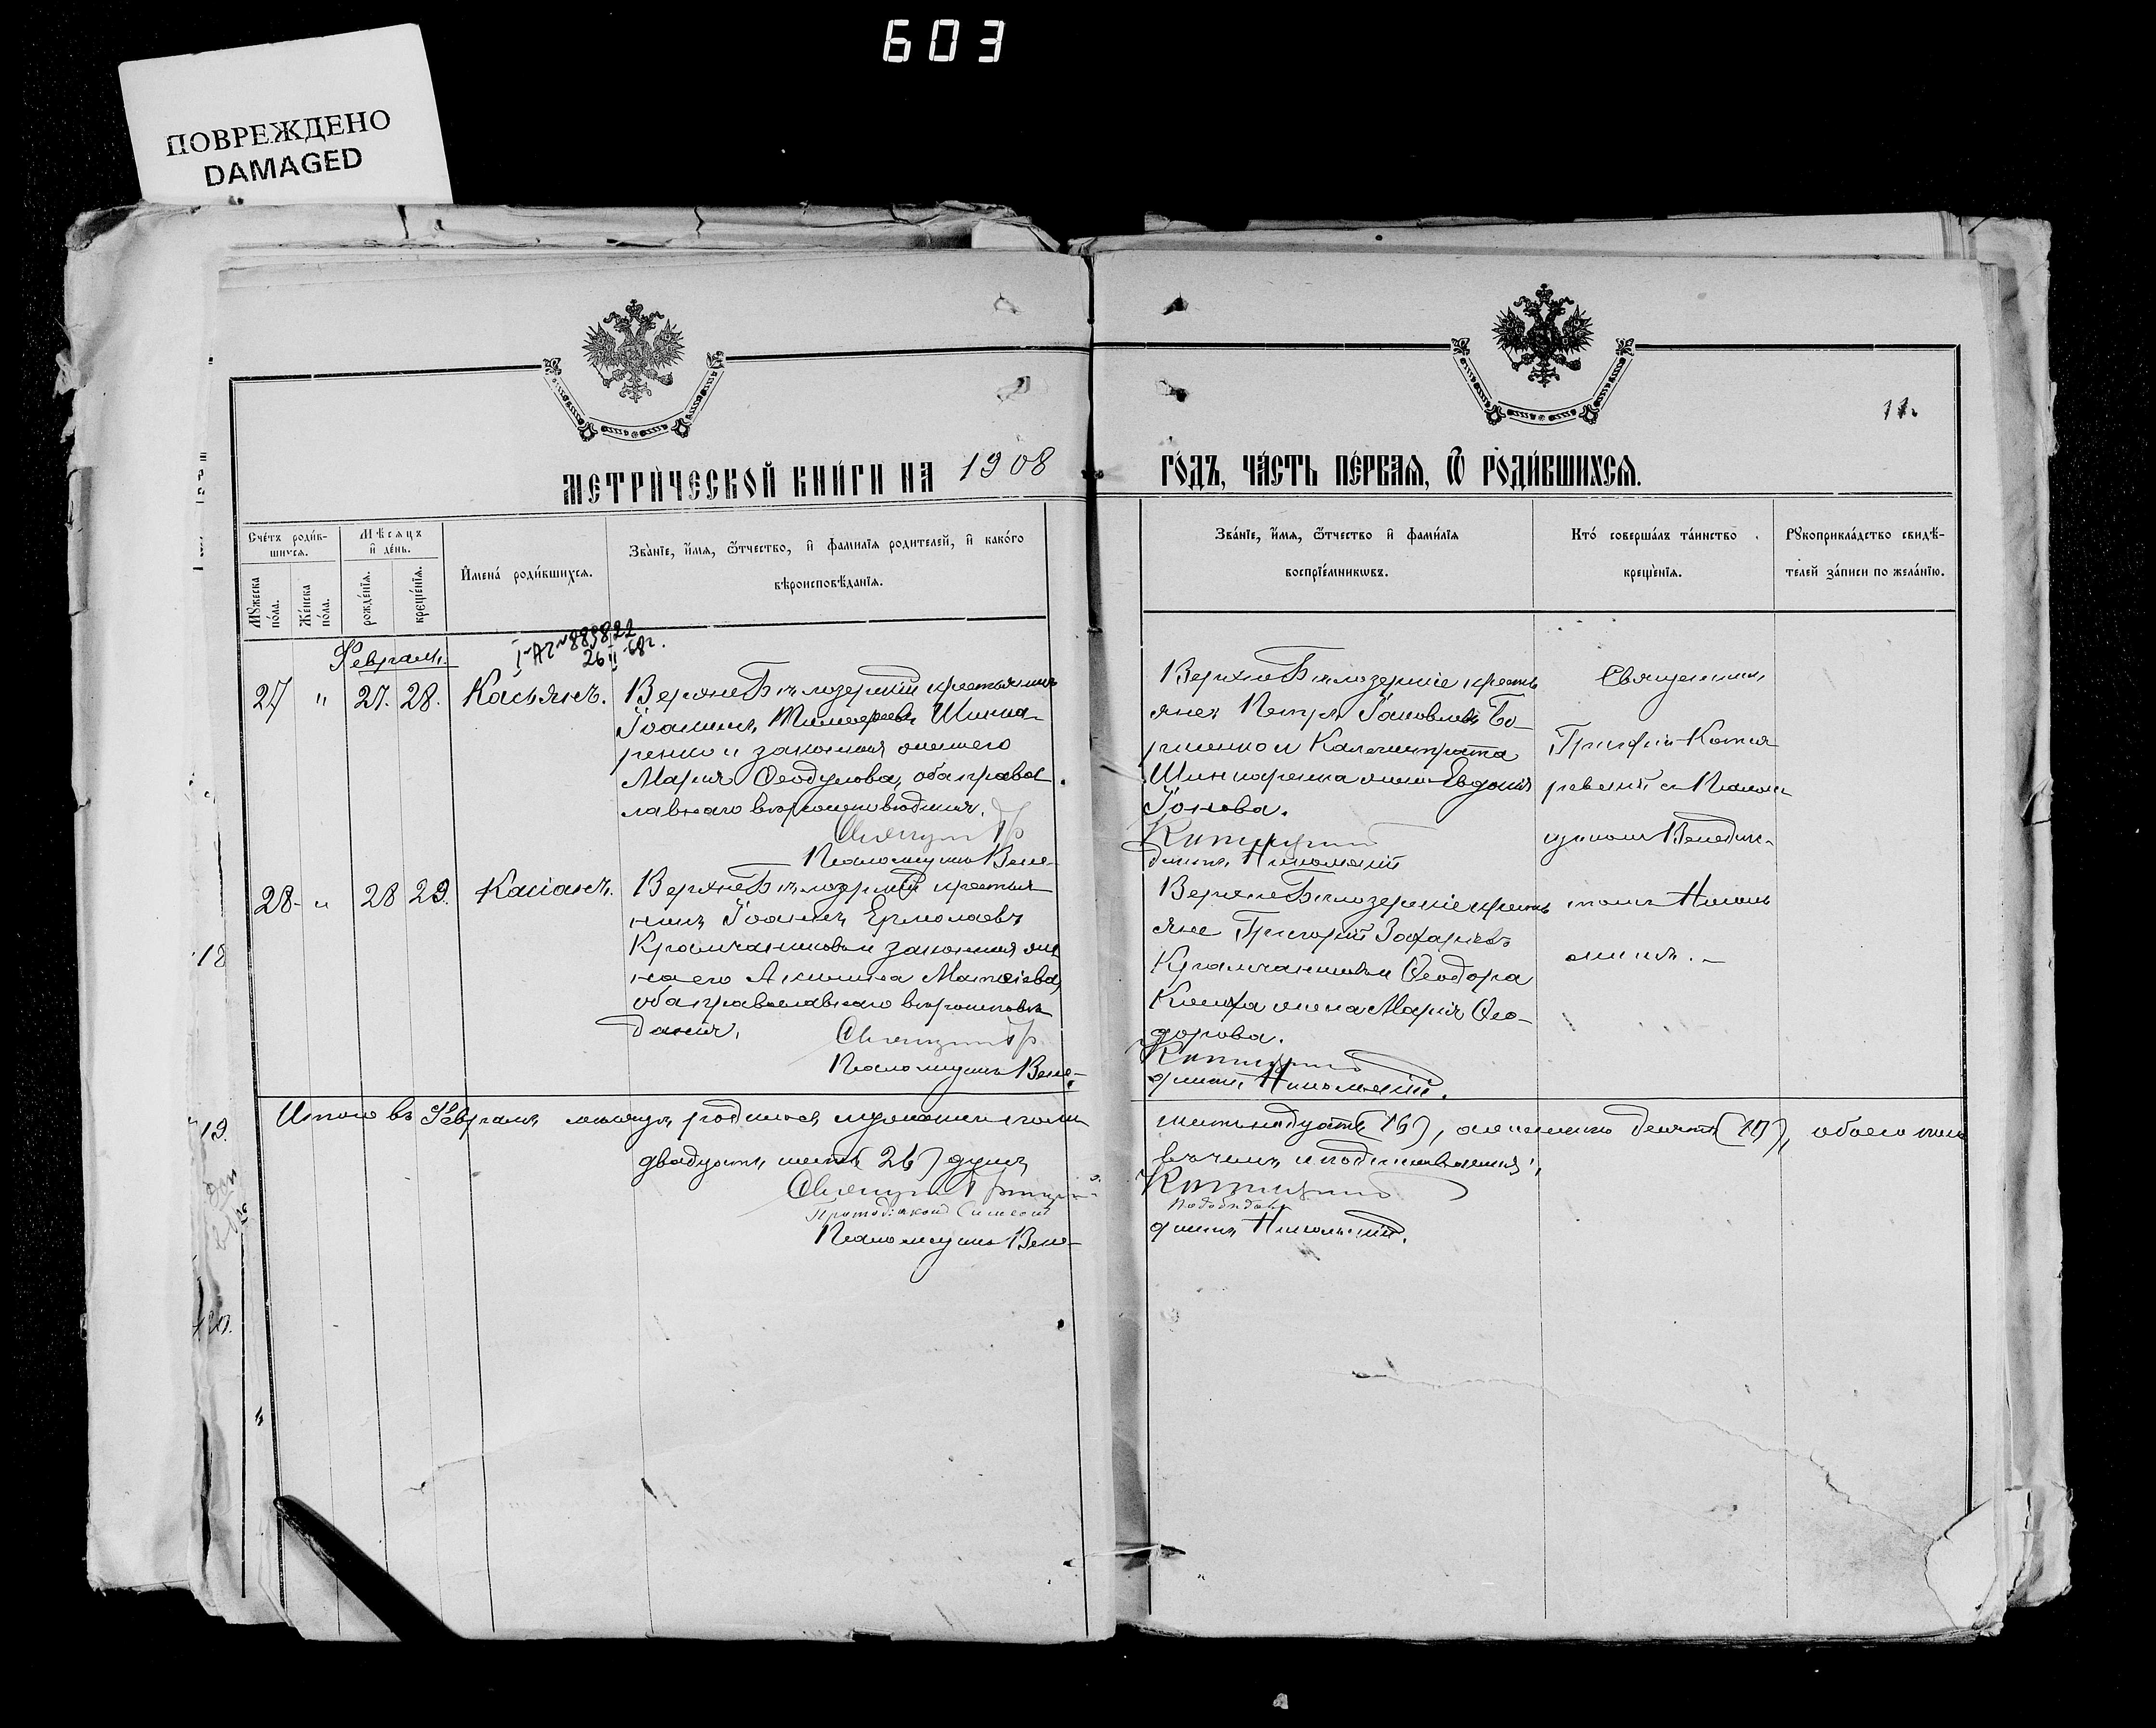 603
ПОВРЕЖДЕНО
DAMAGED
11.
МЕТРИЧЕСКОЙ КНИГИ НА 1908
ГОДЪ, ЧАСТЬ ПЕРВАЯ, Ѿ РОДИВШИХСЯ.
Счетъ родившихся.
Мужеска пола.
Женска пола.
Мѣсяцъ и день.
рожденія.
крещенія.
Имена родившихся.
Званіе, имя, ѿтчество, и фамилія родителей, и какого
вѣроисповѣданія.
Званіе, имя, ѿтчество и фамилія
воспріемниковъ.
Кто совершалъ таинство
крещенія.
Рукоприкладство свидѣ-
телей записи по желанію.
Февраль.
27 " 27. 28. Касьянъ.
Верхне Бѣлозерскій крестьянинъ
Іоаннъ Тимофеевъ Шинка-
ренко и законная жена его
Марія Ѳеодулова, оба правос
лавнаго вѣроисповѣданія.
Псаломщикъ Вене-
Верхне Бѣлозерскіе кресть
яне Петръ Іаковлевъ
и Калистрата
Шинкаренка жена Евдокія
Іонова.
диктъ Никольскій
Священникъ
Григорій
съ Псалом
щикомъ Венедик-
томъ Николь
скимъ.
28 " 28 29. Касіанъ.
Верхне Бѣлозерскій крестья
нинъ Іоаннъ Ермолаевъ
и законная же
на его Акилина Матвіева,
оба православнаго вѣроисповѣ
данія.
Псаломщикъ Вене-
Верхне Бѣлозерскіе кресть
яне Григорій Захаріевъ
и Ѳеодора
жена Марія Ѳео-
дорова.
диктъ Никольскій.
Итого въ Февралѣ мѣсяцѣ родилось мужескаго пола
шестьнадцать (16), женскаго десять (10), обоего пола
двадцать шесть 26) душъ
въ чемъ и подписываемся:
Протодіаконъ Симеонъ
Псаломщикъ Вене-
диктъ Никольскій.
18
19.
20.